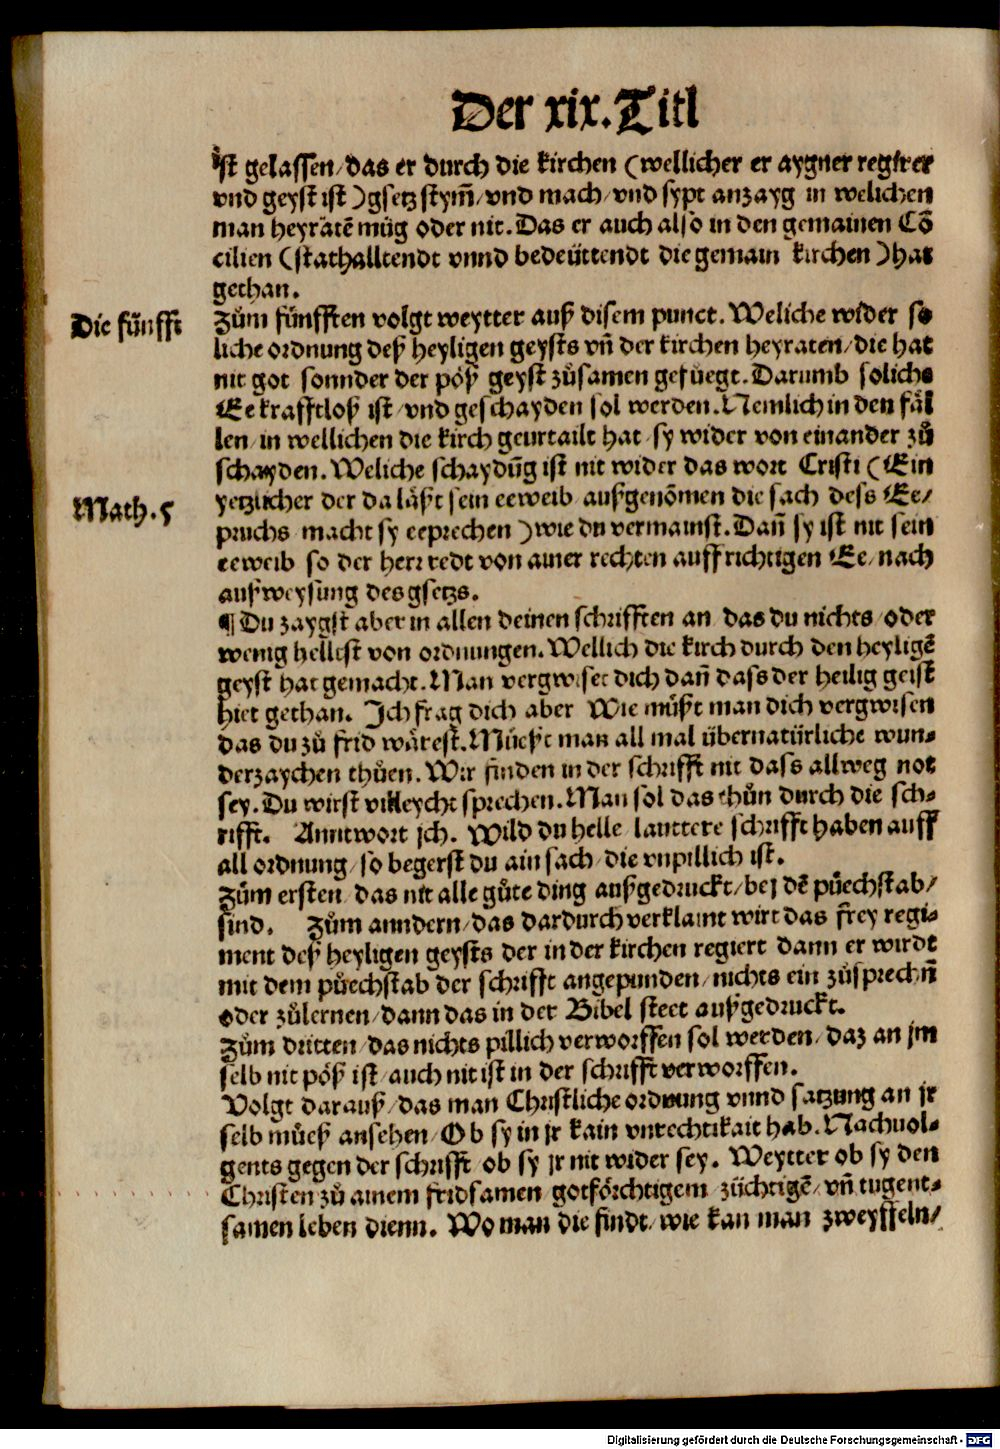 Der xix. Titl
ist gelassen/das er durch die kirchen (wellicher er aygner regirer
vnd geyst ist )gsetz stym̃/vnd mach/vnd sypt anzayg in welichen
man heyrätẽ müg oder nit. Das er auch also in den gemainen Cõ
cilien (stathalltendt vnnd bedeüttendt die gemain kirchen )hat
gethan.
Die fünfft
Zům fünfften volgt weytter auß disem punct. Weliche wider so
liche ordnung deß heyligen geysts vñ der kirchen heyraten/die hat
nit got sonnder der pöß geyst zůsamen gefüegt. Darumb soliche
Ee krafftloß ist/vnd geschayden sol werden. Nemlich in den fäl
len/in wellichen die kirch geurtailt hat/sy wider von einander zů
schayden. Weliche schaydũg ist nit wider das wort Cristi (Ein
Math. 5
yetzlicher der da läßt sein eeweib/außgenõmen die sach dess Ee/
pruchs/macht sy eeprechen )wie du vermainst. Dañ sy ist nit sein
eeweib/so der herr redt von ainer rechten auffrichtigen Ee/nach
außweysung des gsetzs.
¶ Du zaygst aber in allen deinen schrifften an/das du nichts/oder
wenig hellest von ordnungen. Wellich die kirch durch den heyligẽ
geyst hat gemacht. Man vergwiset dich dañ dass der heilig geist
hiet gethan. Ich frag dich aber/Wie müßt man dich vergwisen
das du zů frid wärest. Müeßt man all mal übernatürliche wun⸗
derzaychen thůen. Wir finden in der schrifft nit dass allweg not
sey. Du wirst villeycht sprechen. Man sol das thůn durch die sch⸗
rifft. Anntwort jch. Wild du helle/lauttere schrifft haben auff
all ordnung/so begerst du ain sach/die vnpillich ist.
Zům ersten/das nit alle gůte ding außgedruckt/bej dẽ půechstab/
sind. Zům anndern/das dardurch verklaint wirt das frey regi⸗
ment deß heyligen geysts der in der kirchen regiert/dann er wirdt
mit dem půechstab der schrifft angepunden/nichts ein zůsprechñ
oder zůlernen/dann das in der Bibel steet außgedruckt.
Zům dritten/das nichts pillich verworffen sol werden/daz an jm
selb nit pöß ist/auch nit ist in der schrifft verworffen.
Volgt darauß/das man Christliche ordnung vnnd satzung an jr
selb müeß ansehen/Ob sy in jr kain vnrechtikait hab. Nachuol⸗
gents gegen der schrifft/ob sy jr nit wider sey. Weytter ob sy den
Christen zů ainem fridsamen/gotförchtigem/züchtigẽ/vñ tugent⸗
samen leben dienn. Wo man die findt/wie kan man zweyffeln/
Digitalisierung gefördert durch die Deutsche Forschungsgemeinschaft - DFG